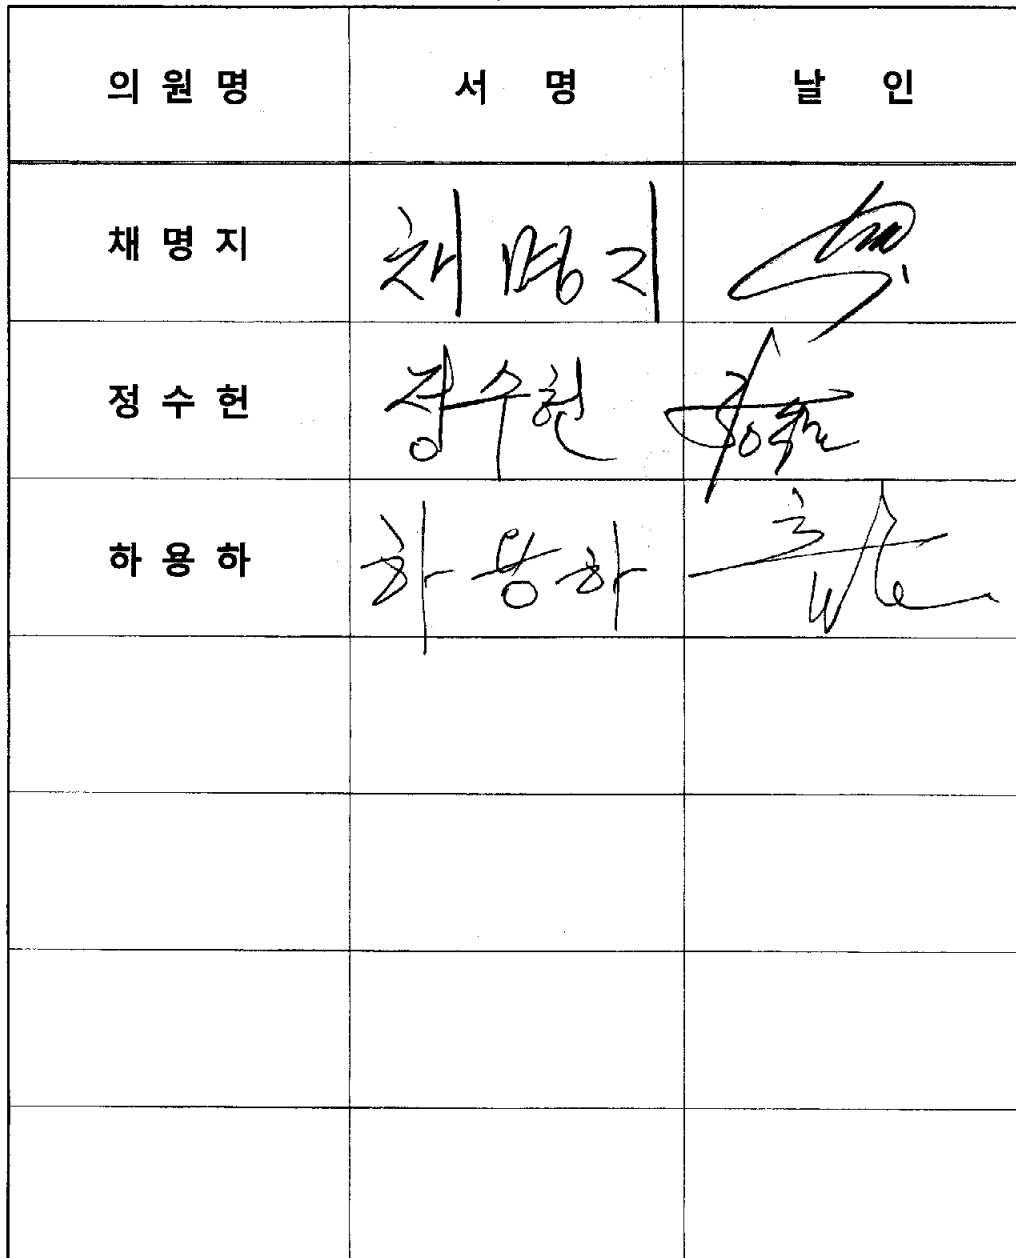 의 원 명 서 명 날 인
채 명 지 채 명 지
정 수 헌 정수헌
하 용 하 하 용 하